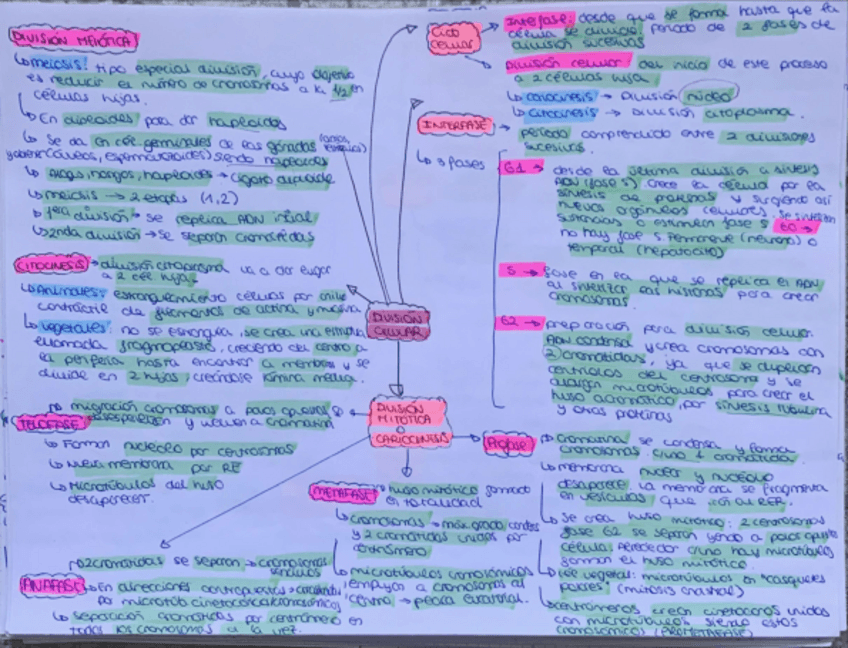 DIVISIÓN MEIÓTICA
meiosis: tipo especial división, cuyo objetivo
es reducir el número de cromosomas a la 1/2 en
células hijas.
En diploides para dar haploides
Se da en cél. germinales de las gónadas
(óvulos, espermatozoides) siendo haploides
haploides → cigoto diploide
meiosis → 2 etapas (1,2)
1era división → se replica ADN inicial
2nda división → se separan cromátidas
CITOCINESIS → división citoplasma va a dar lugar
a 2 cél hijas
Animales: estrangulamiento células por anillo
contráctil de filamentos de actina y miosina
vegetales: no se estrangula, se crea una estructura
llamada fragmoplasto, creciendo del centro a
la periferia hasta encontrar a membrana y se
divide en 2 hijas, creándose lámina media.
DIVISIÓN
CELULAR
Ciclo
celular
Interfase: desde que se forma hasta que la
célula se divide. Periodo de 2 fases de
división sucesivas
División celular: del inicio de este proceso
a 2 células hijas.
cariocinesis → División núcleo
citocinesis → División citoplasma.
INTERFASE →
periodo comprendido entre 2 divisiones
sucesivas.
3 fases
G1 → desde la última división a síntesis
ADN (fase S). Crece la célula por la
síntesis de proteínas y surgiendo así
nuevos orgánulos celulares. Se sintetizan
sustancias q estimulan fase S G0 →
no hay fase S. Permanente (neurona) o
temporal (hepatocito)
S → fase en la que se replica el ADN
al sintetizar las histonas para crear
cromosomas
G2 → preparación para división celular.
ADN condensa y crea cromosomas con
2 cromátidas, ya que se duplican
centriolos del centrosoma y se
alargan microtúbulos para crear el
huso acromático, por síntesis tubulina
y otras proteínas
DIVISIÓN
MITÓTICA
O
CARIOCINESIS
migración cromosomas a polos opuestos
y vuelven a cromatina
TELOFASE
Forman nucleolo por
Nueva membrana por RE
Microtúbulos del huso
desaparecen.
METAFASE → huso mitótico formado
en totalidad
cromosomas → máx grado condens
y 2 cromátidas unidas por
centrómero
microtúbulos cromosómicos
empujan a cromosomas al
centro → placa ecuatorial.
Profase
cromatina se condensa y forma
cromosomas c/uno 2 cromátidas
membrana nuclear y nucleolo
desaparece. La membrana se fragmenta
en vesículas que van al RER.
Se crea huso mitótico: 2 centrosomas
fase G2 se separan yendo a polos opuestos
célula. Alrededor c/uno hay microtúbulos
forman el huso mitótico.
cél vegetal: microtúbulos en "casquetes
polares" (mitosis anastral)
centrómeros crean cinetocoros unidos
con microtúbulos, siendo estos
cromosómicos (PROMETAFASE)
2 cromátidas se separan → cromosomas
ANAFASE
En direcciones contrapuestas
por microtúb cinetocóricos/cromosómicos
separación cromátidas por centrómero en
todos los cromosomas a la vez.